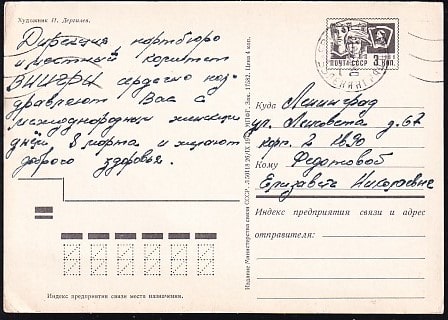 Художник П. Дергилев.
Дирекция, партбюро
и местный комитет
сердечно поз-
дравляют Вас с
международным женским
днём 8 марта и желают
доброго здоровья.
ПОЧТА СССР
Куда Ленинград
ул. д. 67
корп. 2 кв. 90
Кому Федотовой
Елизавете Николаевне
Индекс предприятия связи и адрес
отправителя:
Индекс предприятия связи места назначения.
Издание Министерства связи СССР.
Цена 4 коп.